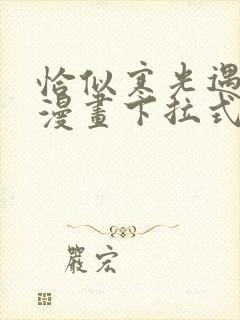 恰似寒光遇
漫畫下拉式
嚴宏